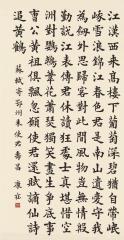 江漢西來高樓下葡萄深碧猶自帶岷
峨雪浪錦江春色君是南山遺愛守我
為劍外思歸客對此間風物豈無情殷
勤說江表傳君休讀狂處士真堪惜空
洲對鸚鵡葦花蕭瑟獨笑書生爭底事
曹公黃祖俱飄忽願使君還賦謫仙詩
追黃鶴
蘇軾寄鄂州朱使君壽昌